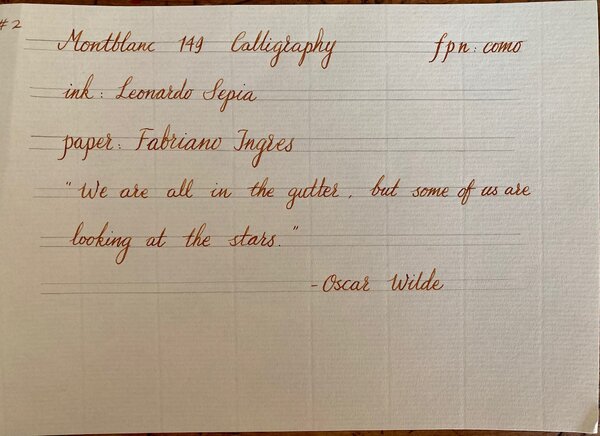 #2
Montblanc 149 Calligraphy fpn: como
ink: Leonardo Sepia
paper: Fabriano Ingres
"We are all in the gutter, but some of us are
looking at the stars."
-Oscar Wilde